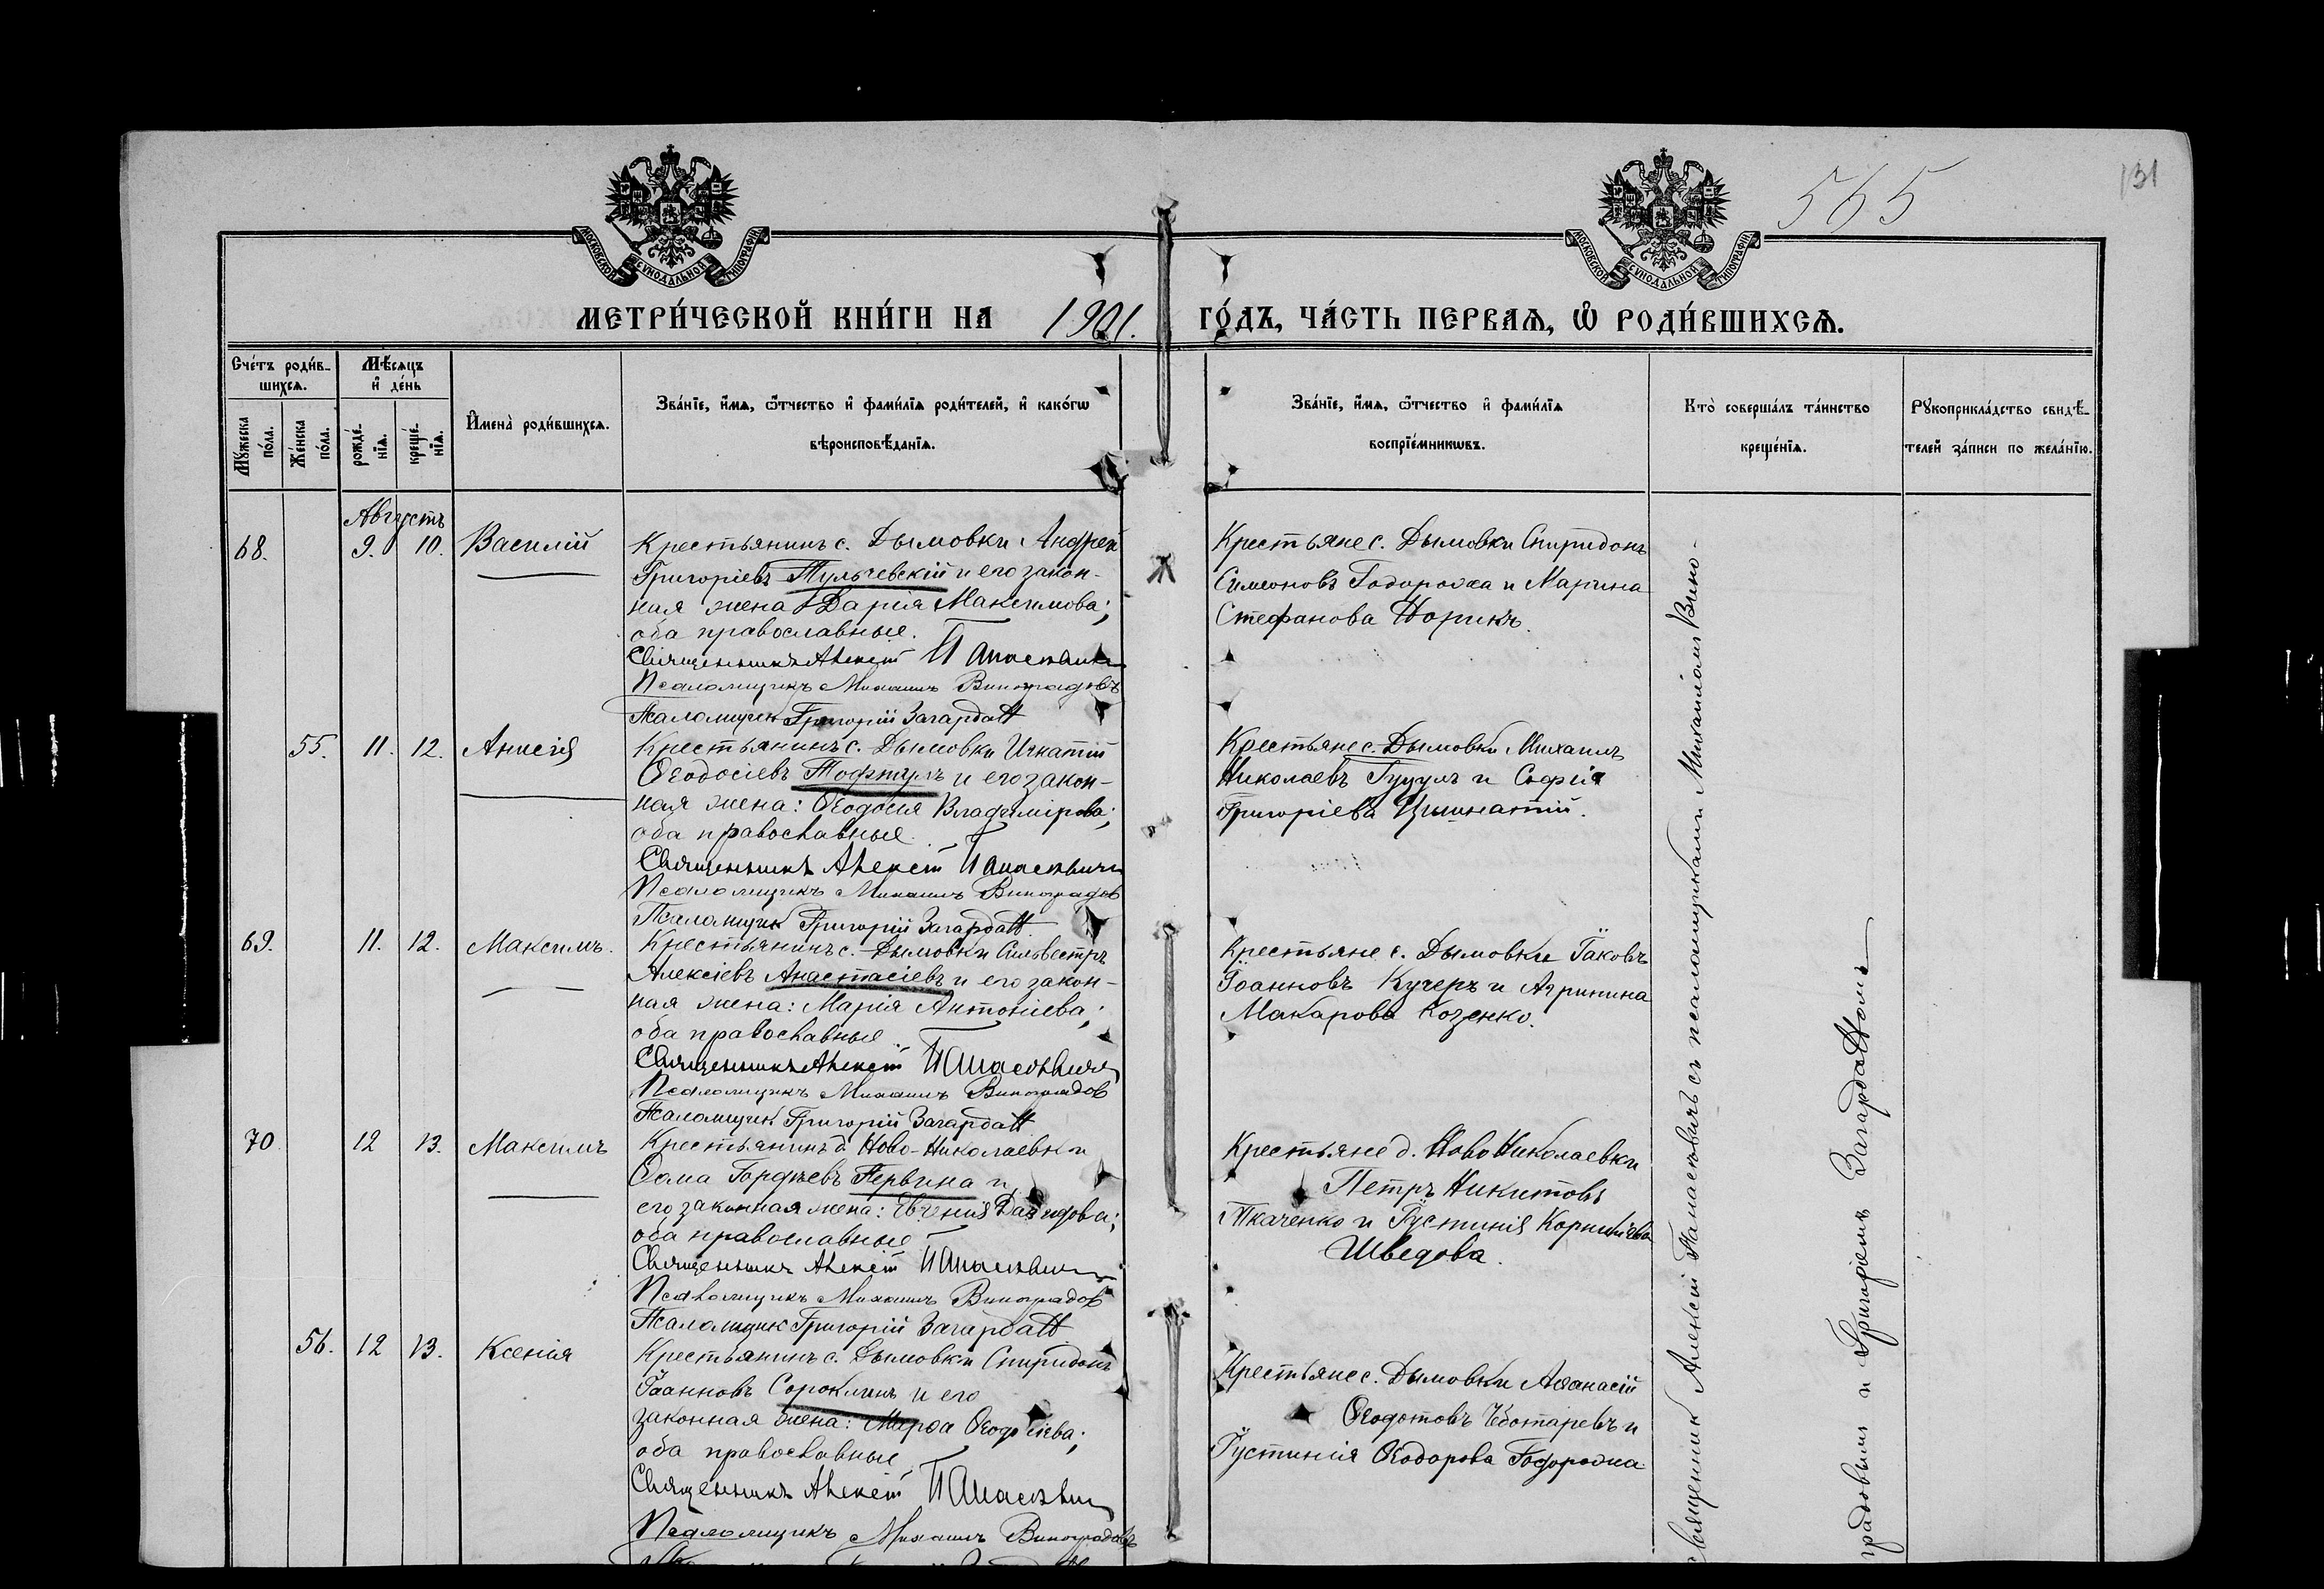 131
565
МОСКОВСКОЙ СѴНОДАЛЬНОЙ ТИПОГРАФІИ
МОСКОВСКОЙ СѴНОДАЛЬНОЙ ТИПОГРАФІИ
МЕТРИ́ЧЕСКОЙ КНИ́ГИ НА 1901. ГО́ДЪ, ЧА́СТЬ ПЕРВАѦ, Ѽ РОДИ́ВШИХСѦ.
Сче́тъ роди́в-
шихсѧ.
Мꙋжеска по́ла.
Же́нска по́ла.
Мѣ́сѧцъ и҆ де́нь
рожде́-
нїѧ.
креще́-
нїѧ.
И҆мена̀ роди́вшихсѧ.
Зва́нїе, и҆́мѧ, ѻ҆́тчество и҆ фами́лїѧ роди́телей, и҆ како́гѡ
вѣроисповѣ́данїѧ.
Зва́нїе, и҆́мѧ, ѻ҆́тчество и҆ фами́лїѧ
воспрїе́мникѡвъ.
Кто̀ соверша́лъ та́инство
креще́нїѧ.
Рꙋкоприкла́дство свидѣ́-
телей за́писи по жела́нїю.
Августъ
68. 9. 10. Василій
Крестьянинъ с. Дымовки Андрей
Григоріевъ Тульчевскій и его закон-
ная жена Дарія Максимова;
оба православные.
Священникъ Алексій Панаскевичъ
Псаломщикъ Михаилъ Виноградовъ
Псаломщик Григорій Загардатт
Крестьяне с. Дымовки Спиридонъ
Симеоновъ Годорожа и Марина
Стефанова Норикъ.
55. 11. 12. Анисія
Крестьянинъ с. Дымовки Игнатій
Ѳеодосіевъ Тофтулъ и его закон-
ная жена: Ѳеодосія Владимірова;
оба православные.
Священникъ Алексій Панаскевичъ
Псаломщикъ Михаилъ Виноградов
Псаломщик Григорій Загардатт
Крестьяне с. Дымовки Михаилъ
Николаевъ Гуцулъ и Софія
Григоріева
69. 11. 12. Максимъ.
Крестьянинъ с. Дымовки Сильвестръ
Алексіевъ Анастасіевъ и его закон-
ная жена: Марія Антоніева;
оба православные
Священникъ Алексій Панаскевичъ
Псаломщикъ Михаилъ Виноградов
Псаломщик Григорій Загардатт
Крестьяне с. Дымовки Іаковъ
Іоанновъ Кучеръ и
Макарова Козенко.
70 12 13. Максимъ
Крестьянинъ д. Ново-Николаевки
Ѳома Гордѣевъ Первина и
его законная жена: Евгенія Давидова;
оба православные
Священникъ Алексій Панаскевичъ
Псаломщикъ Михаилъ Виноградов
Псаломщик Григорій Загардатт
Крестьяне д. Ново Николаевки
Петръ Никитовъ
Ткаченко и Іустинія Корниліева
Шведова.
56. 12 13. Ксенія
Крестьянинъ с. Дымовки Спиридонъ
Іоанновъ Сороклинъ и его
законная жена: Марѳа Ѳеодосіева;
оба православные
Священникъ Алексій Панаскевичъ
Псаломщикъ Михаилъ Виноградовъ
Крестьяне с. Дымовки Аѳанасій
Ѳеодотовъ Чеботаревъ и
Іустинія Ѳеодорова Годорожа
Священник Алексій Панаскевичъ съ псаломщиками Михаиломъ Вино-
градовымъ и Григоріемъ Загардаттомъ